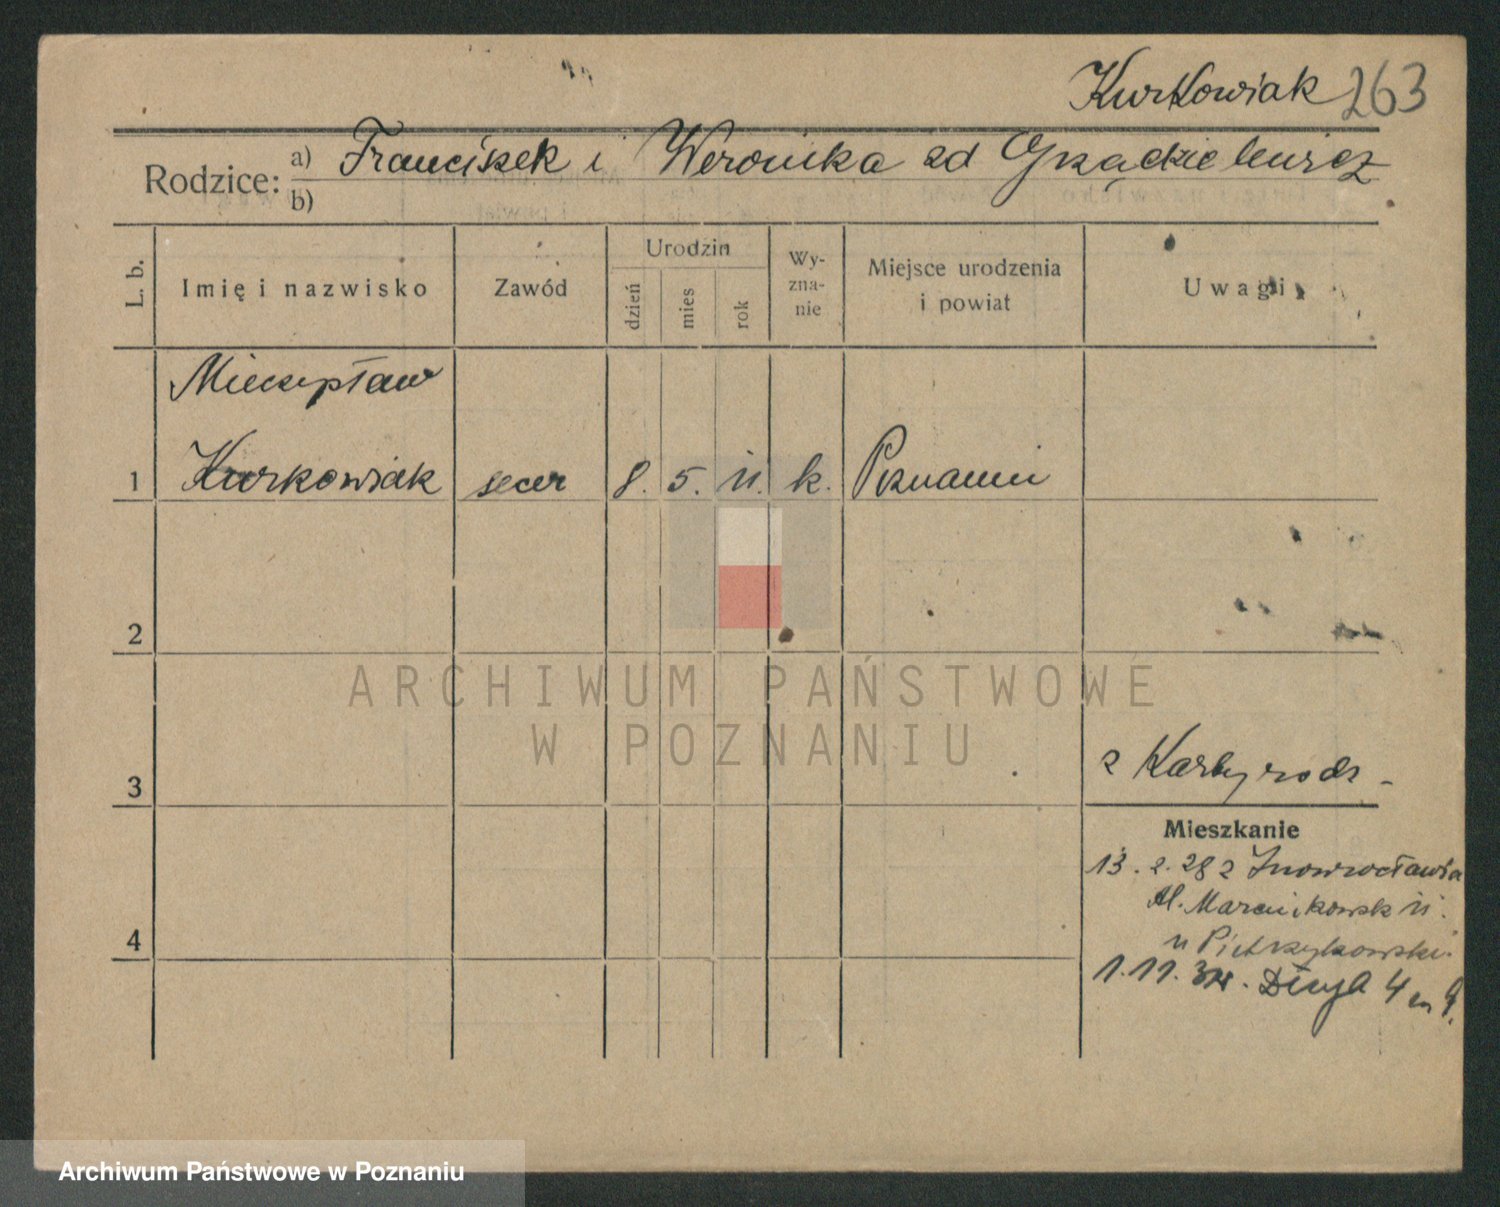 Kurkowiak 263
Rodzice: a) Franciszek i Weronika zd Grządzielewicz
b)
L. b. Imię i nazwisko Zawód Urodzin dzień mies rok Wy-zna-nie Miejsce urodzenia i powiat Uwagi
Mieczysław
1 Kurkowiak secer 8. 5. 11. k. Poznaniu
2
ARCHIWUM PAŃSTWOWE
W POZNANIU
3 z Karty rodz-
Mieszkanie
13. 2. 28 z Inowrocławia
Al. Marcinkowsk 11.
u Pietrzykowski.
4
1. 11. Długa 4 m 9.
Archiwum Państwowe w Poznaniu